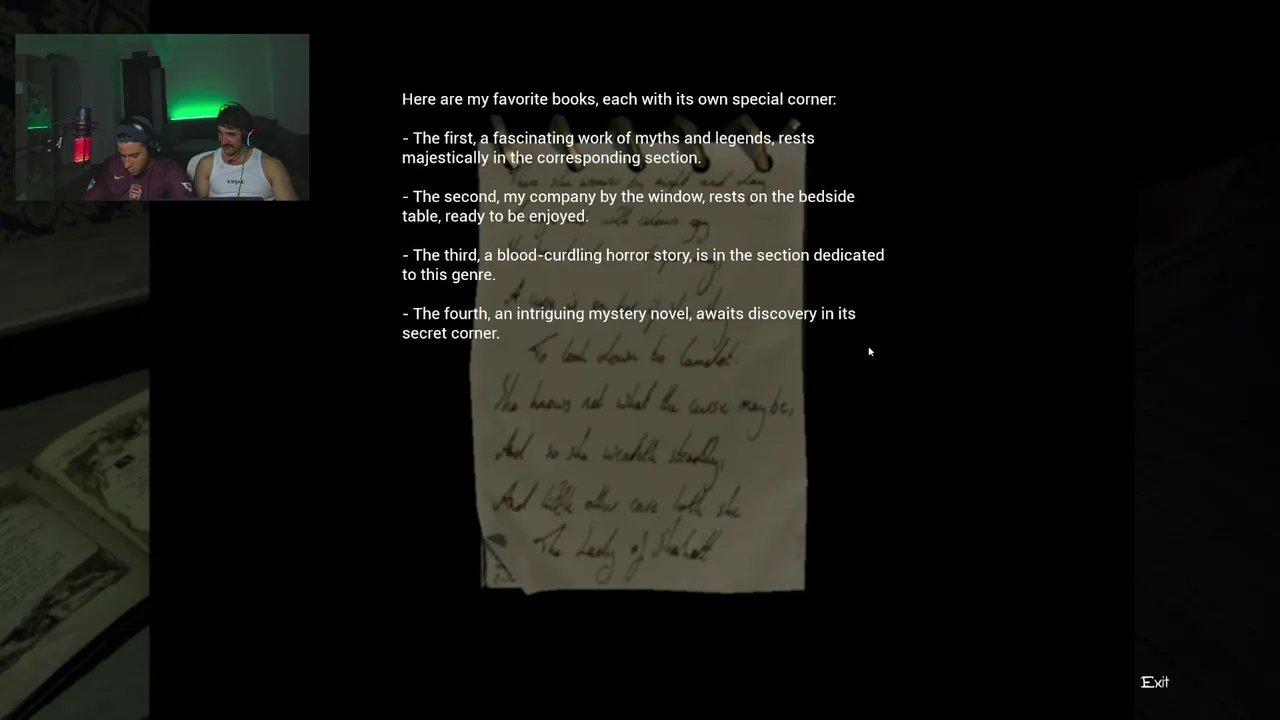 Here are my favorite books, each with its own special corner:
- The first, a fascinating work of myths and legends, rests
majestically in the corresponding section.
- The second, my company by the window, rests on the bedside
table, ready to be enjoyed.
- The third, a blood-curdling horror story, is in the section dedicated
to this genre.
- The fourth, an intriguing mystery novel, awaits discovery in its
secret corner.
To look down to Camelot.
She knows not what the curse may be,
And so she weaveth steadily,
And little other care hath she
The Lady of Shalott
Exit